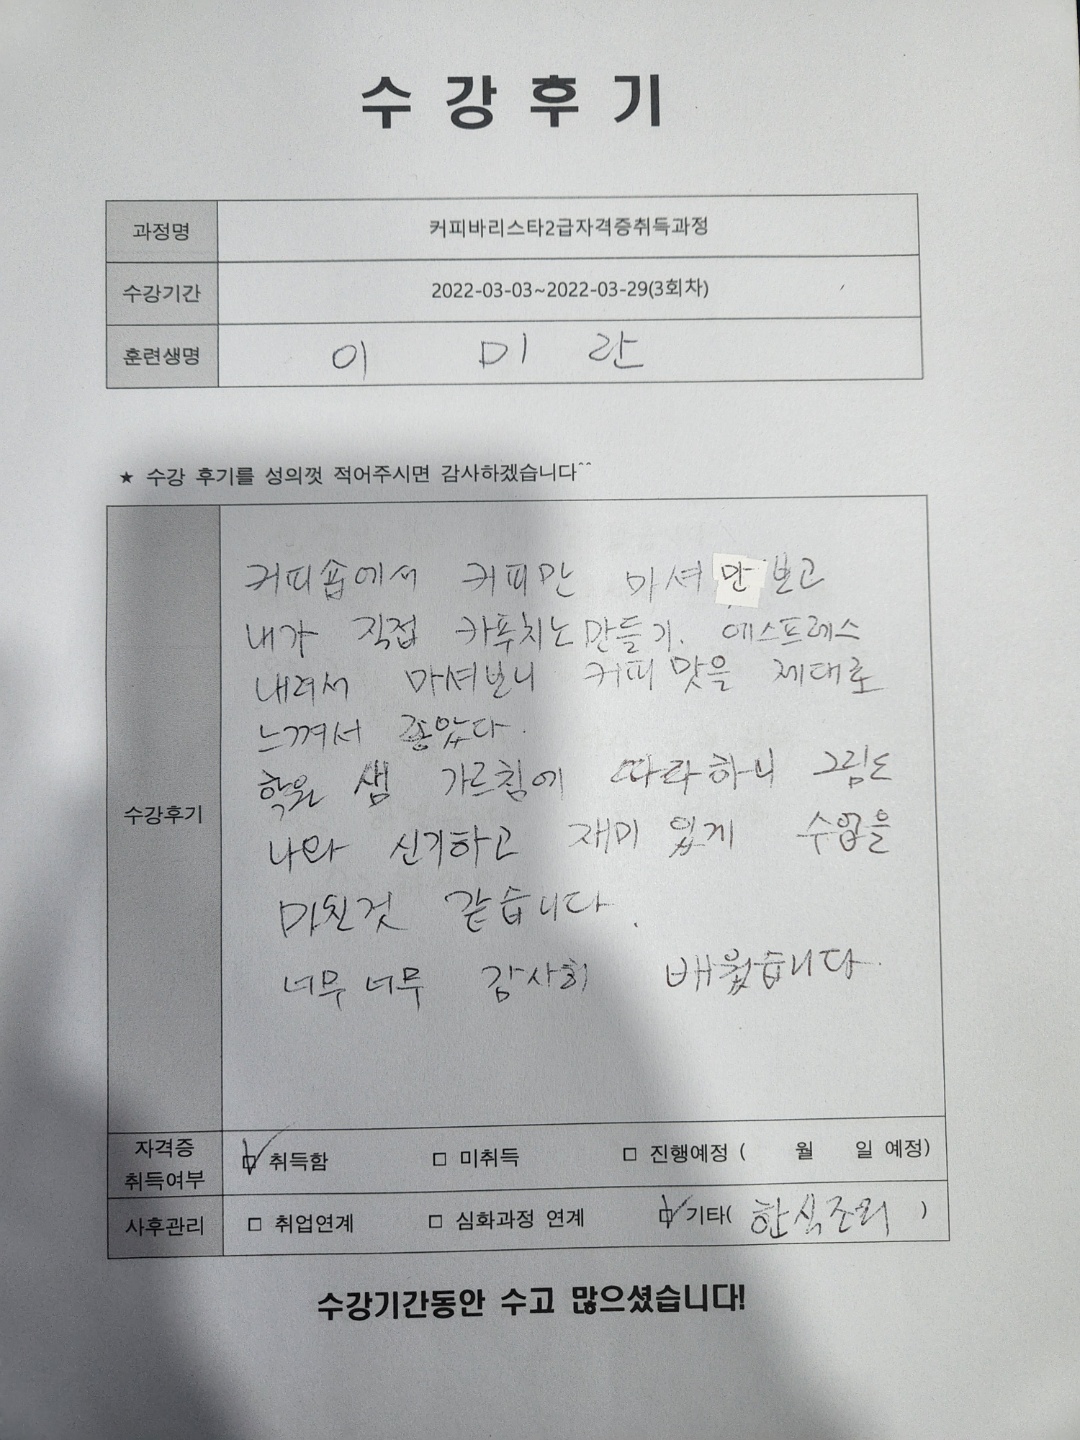 수강후기
과정명 커피바리스타2급자격증취득과정
수강기간 2022-03-03~2022-03-29(3회차)
훈련생명 이 미 란
★ 수강 후기를 성의껏 적어주시면 감사하겠습니다^^
수강후기
커피숍에서 커피만 마셔만 보고
내가 직접 카푸치노만들기. 에스프레스
내려서 마셔보니 커피 맛을 제대로
느껴서 좋았다.
학원 샘 가르침에 따라하니 그림도
나와 신기하고 재미 있게 수업을
마친것 같습니다.
너무 너무 감사히 배웠습니다.
자격증 취득여부 ☑ 취득함 □ 미취득 □ 진행예정 ( 월 일 예정)
사후관리 □ 취업연계 □ 심화과정 연계 ☑ 기타( 한식조리 )
수강기간동안 수고 많으셨습니다!